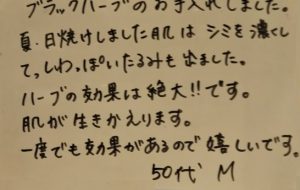 ブラックハーブのお手入れしました。
夏・日焼けしました肌は シミを濃くし
てっしわっぽいたるみも出ました。
ハーブの効果は絶大!!です。
肌が生きかえります。
一度でも効果があるので嬉しいです。
50代 M